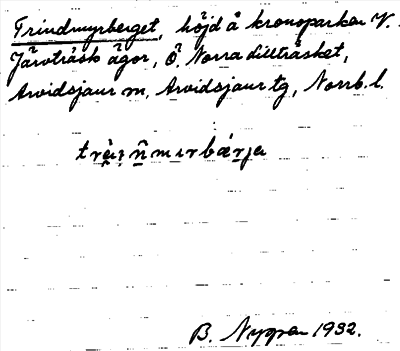 Trindmyrberget, höjd å kronoparken V.
Järvträsk ägor, Ö. Norra Lillträsket,
Arvidsjaur sn. Arvidsjaur tg, Norrb. l.
B. Nygren 1932.